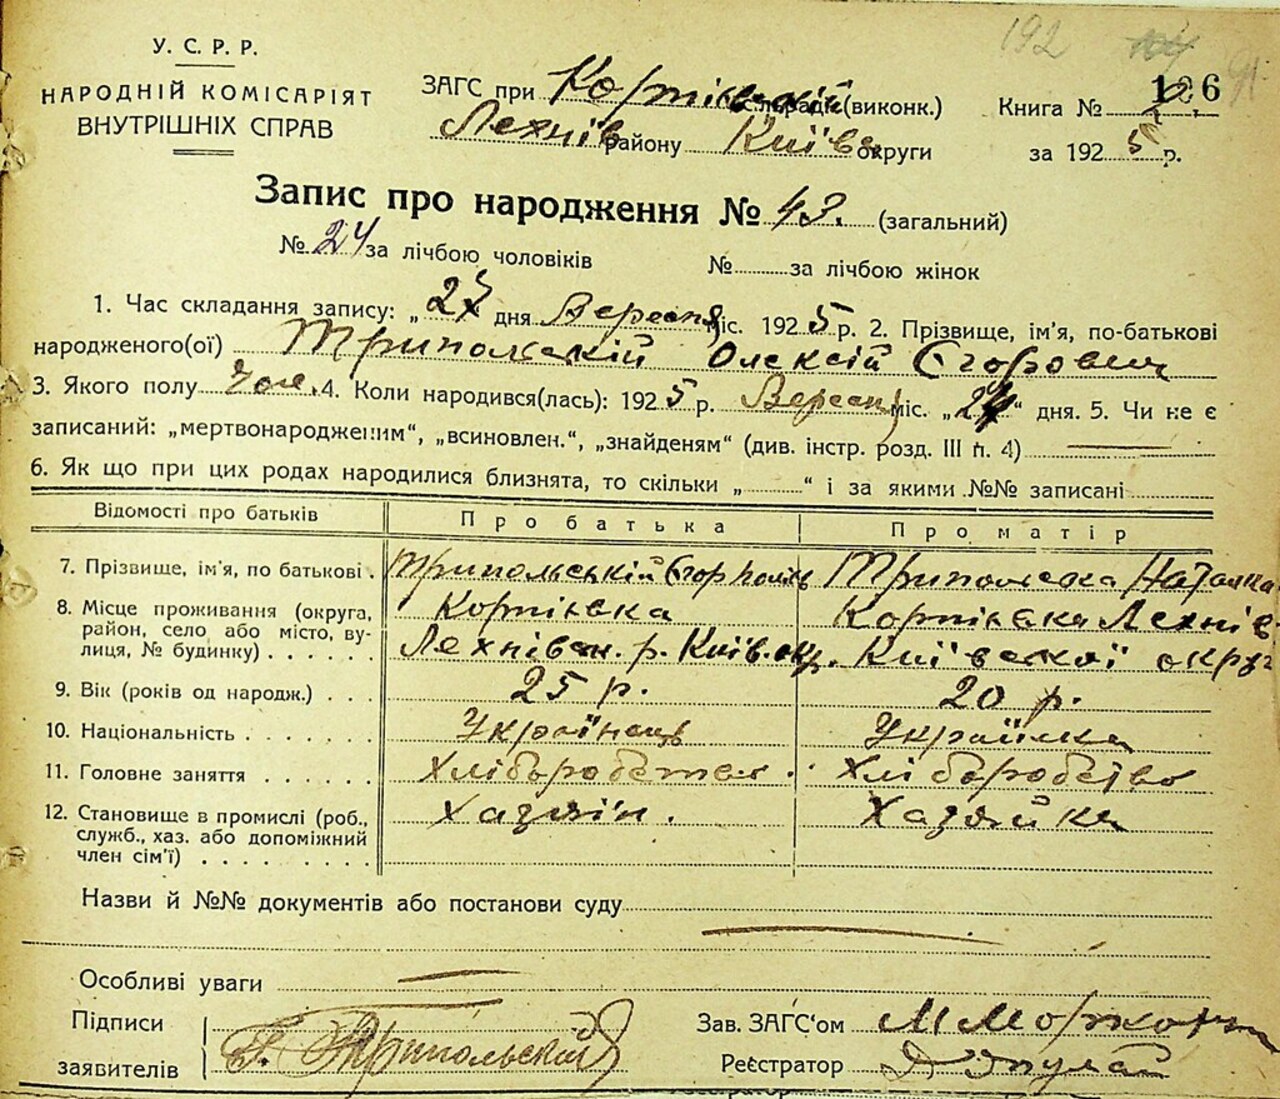 192
У. С. Р. Р.
126
НАРОДНІЙ КОМІСАРІЯТ
ВНУТРІШНІХ СПРАВ
ЗАГС при сільраді (виконк.) Книга № 2.
Лехнів району Київс округи за 1925 р.
Запис про народження № 43. (загальний)
№ 24 за лічбою чоловіків № за лічбою жінок
1. Час складання запису: „27 дня Вересня міс. 1925 р. 2. Прізвище, ім’я, по-батькові
народженого(ої) Трипольскій Олексій Єгорович
3. Якого полу чол. 4. Коли народився(лась): 1925 р. Вересня міс. „24“ дня. 5. Чи не є
записаний: „мертвонародженим“, „всиновлен.“, „знайденям“ (див. інстр. розд. III п. 4)
6. Як що при цих родах народилися близнята, то скільки „ “ і за якими №№ записані
Відомості про батьків Про батька Про матір
7. Прізвище, ім’я, по батькові. Трипольській Єгор Трипольска Наталка
8. Місце проживання (округа, Корніевка Корніевка Лехнів
район, село або місто, ву-
лиця, № будинку) . . . . . . Лехнівськ. р. Київ. окр. Київської округ
9. Вік (років од народж.) . . . 25 р. 20 р.
10. Національність . . . . . . Українець Українка
11. Головне заняття . . . . . . Хліборобство. Хліборобство
12. Становище в промислі (роб., Хазяїн. Хазяйка
служб., хаз. або допоміжний
член сім’ї) . . . . . . . .
Назви й №№ документів або постанови суду
Особливі уваги
Підписи
заявителів Г. Трипольский
Зав. ЗАГС‘ом
Реєстратор